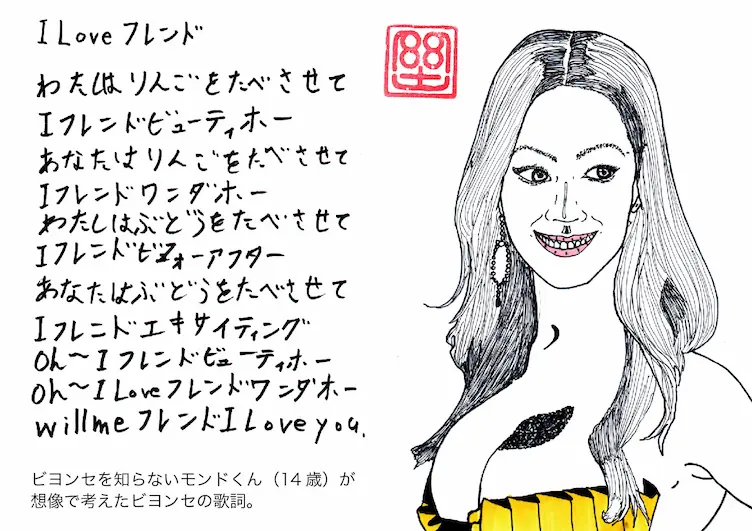 I Love フレンド
わたしはりんごをたべさせて
Iフレンドビューティホー
あなたはりんごをたべさせて
Iフレンドワンダホー
わたしはぶどうをたべさせて
Iフレンドビフォーアフター
あなたはぶどうをたべさせて
Iフレンドエキサイティング
Oh〜Iフレンドビューティホー
Oh〜I Loveフレンドワンダホー
will me フレンドI Love you.
ビヨンセを知らないモンドくん（14歳）が
想像で考えたビヨンセの歌詞。